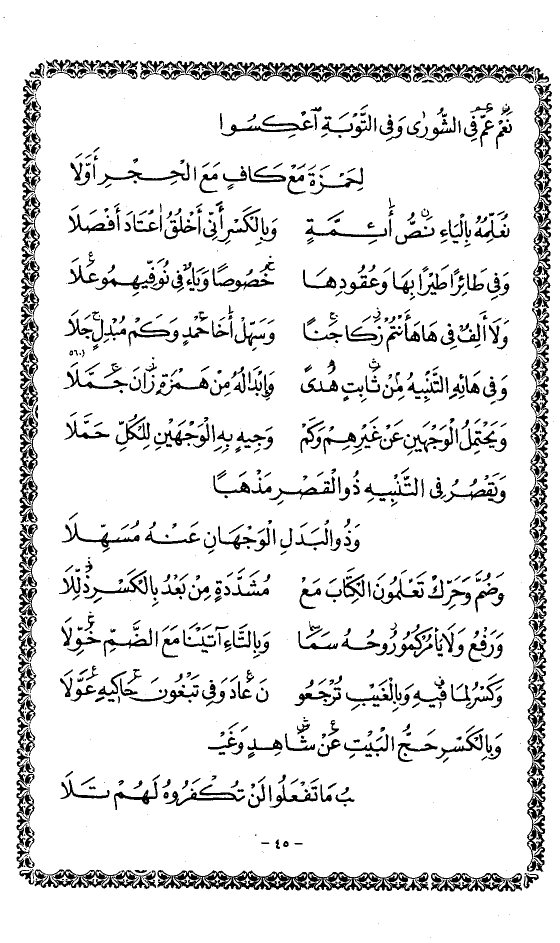 نَعَمْ عَمَّ فِي الشُّورَى وَفِي التَّوْبَةِ اعْكِسُوا
لِحَمْزَةَ مَعْ كَافٍ مَعَ الْحِجْرِ أَوَّلَا
نُعَلِّمُهُ بِالْيَاءِ نَصُّ أَئِمَّةٍ وَبِالْكَسْرِ أَنِّي أَخْلُقُ اعْتَادَ أَفْصَلَا
وَفِي طَائِرًا طَيْرًا بِهَا وَعُقُودِهَا خُصُوصًا وَيَاءٌ فِي نُوَفِّيهِمُو عَلَا
وَلَا أَلِفٌ فِي هَا هَأَنْتُمْ زَكَا جَنًا وَسَهِّلْ أَخَا حَمْدٍ وَكَمْ مُبْدِلٍ جَلَا
٥٦٠
وَفِي هَائِهِ التَّنْبِيهُ مِنْ ثَابِتٍ هُدًى وَإِبْدَالُهُ مِنْ هَمْزَةٍ زَانَ جَمَّلَا
وَيَحْتَمِلُ الْوَجْهَيْنِ عَنْ غَيْرِهِمْ وَكَمْ وَجِيهٍ بِهِ الْوَجْهَيْنِ لِلْكُلِّ حَمَّلَا
وَيَقْصُرُ فِي التَّنْبِيهِ ذُو الْقَصْرِ مَذْهَبًا
وَذُو الْبَدَلِ الْوَجْهَانِ عَنْهُ مُسَهِّلَا
وَضُمَّ وَحَرِّكْ تَعْلَمُونَ الْكِتَابَ مَعْ مُشَدَّدَةٍ مِنْ بَعْدُ بِالْكَسْرِ ذُلِّلَا
وَرَفْعُ وَلَا يَأْمُرْكُمُو رُوحُهُ سَمَا وَبِالتَّاءِ آتَيْنَا مَعَ الضَّمِّ خُوِّلَا
وَكَسْرُ لِمَا فِيهِ وَبِالْغَيْبِ تُرْجَعُو نَ عَادَ وَفِي تَبْغُونَ حَاكِيهِ عَوَّلَا
وَبِالْكَسْرِ حَجُّ الْبَيْتِ عَنْ شَاهِدٍ وَغَيْـ
ـبُ مَا تَفْعَلُوا لَنْ تُكْفَرُوهُ لَهُمْ تَلَا
- ٤٥ -